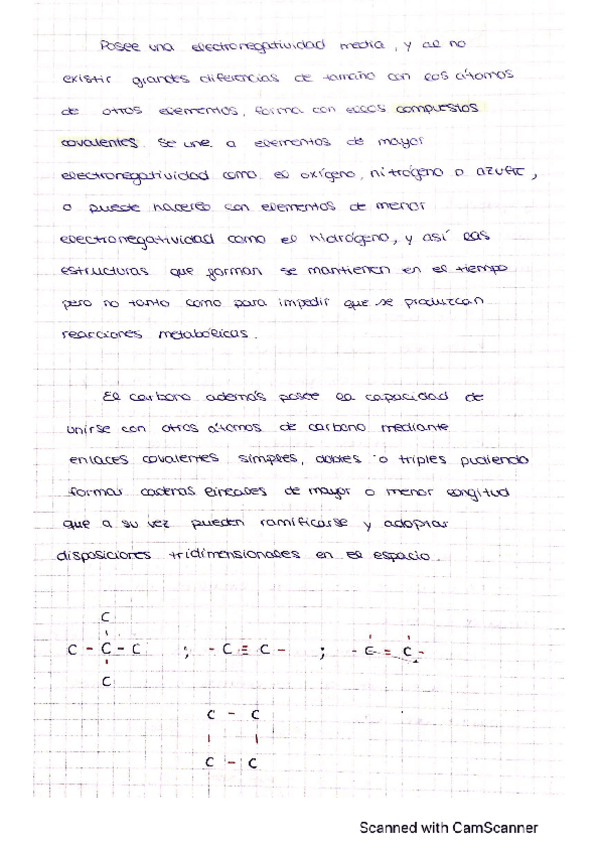 Posee una electronegatividad media, y al no
existir grandes diferencias de tamaño con los átomos
de otros elementos, forma con ellos compuestos
covalentes. Se une a elementos de mayor
electronegatividad como el oxígeno, nitrógeno o azufre,
o puede hacerlo con elementos de menor
electronegatividad como el hidrógeno, y así las
estructuras que forman se mantienen en el tiempo
pero no tanto como para impedir que se produzcan
reacciones metabólicas.
El carbono además posee la capacidad de
unirse con otros átomos de carbono mediante
enlaces covalentes simples, dobles o triples pudiendo
formar cadenas lineales de mayor o menor longitud
que a su vez pueden ramificarse y adoptar
disposiciones tridimensionales en el espacio.
C
C - C - C ; - C ≡ C - ; - C = C -
C
C - C
C - C
Scanned with CamScanner